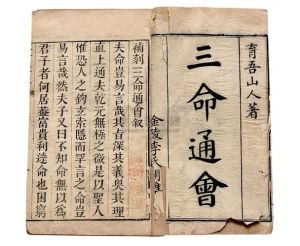 育吾山人著
三命通會
金陵李氏
補刻三命通會敘
夫命豈易言哉其旨深其義奧其理
直上通夫乾元無極之微是以聖人
惟恐人之鉤玄索隱而罕言之也豈
易言哉然夫子又曰不知命無以為
君子者何居蓋富貴利達命也困窮